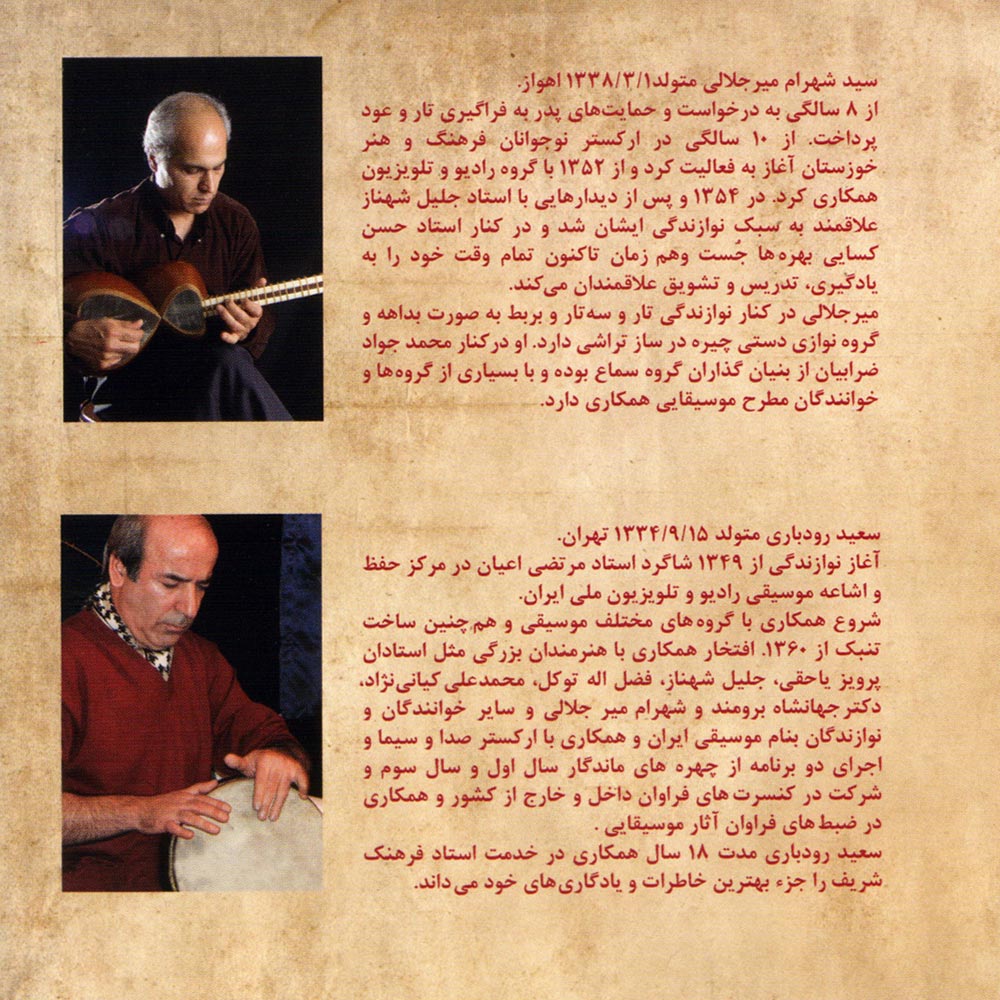 سید شهرام میرجلالی متولد۱۳۳۸/۳/۱ اهواز.
از ۸ سالگی به درخواست و حمایت‌های پدر به فراگیری تار و عود
پرداخت. از ۱۰ سالگی در ارکستر نوجوانان فرهنگ و هنر
خوزستان آغاز به فعالیت کرد و از ۱۳۵۲ با گروه رادیو و تلویزیون
همکاری کرد. در ۱۳۵۴ و پس از دیدارهایی با استاد جلیل شهناز
علاقمند به سبک نوازندگی ایشان شد و در کنار استاد حسن
کسایی بهره‌ها جُست وهم زمان تاکنون تمام وقت خود را به
یادگیری، تدریس و تشویق علاقمندان می‌کند.
میرجلالی در کنار نوازندگی تار و سه‌تار و بربط به صورت بداهه و
گروه نوازی دستی چیره در ساز تراشی دارد. او درکنار محمد جواد
ضرابیان از بنیان گذاران گروه سماع بوده و با بسیاری از گروه‌ها و
خوانندگان مطرح موسیقایی همکاری دارد.
سعید رودباری متولد ۱۳۳۴/۹/۱۵ تهران.
آغاز نوازندگی از ۱۳۴۹ شاگرد استاد مرتضی اعیان در مرکز حفظ
و اشاعه موسیقی رادیو و تلویزیون ملی ایران.
شروع همکاری با گروه‌های مختلف موسیقی و هم‌چنین ساخت
تنبک از ۱۳۶۰. افتخار همکاری با هنرمندان بزرگی مثل استادان
پرویز یاحقی، جلیل شهناز، فضل اله توکل، محمدعلی کیانی‌نژاد،
دکتر جهانشاه برومند و شهرام میر جلالی و سایر خوانندگان و
نوازندگان بنام موسیقی ایران و همکاری با ارکستر صدا و سیما و
اجرای دو برنامه از چهره های ماندگار سال اول و سال سوم و
شرکت در کنسرت‌های فراوان داخل و خارج از کشور و همکاری
در ضبط‌های فراوان آثار موسیقایی .
سعید رودباری مدت ۱۸ سال همکاری در خدمت استاد فرهنگ
شریف را جزء بهترین خاطرات و یادگاری‌های خود می‌داند.